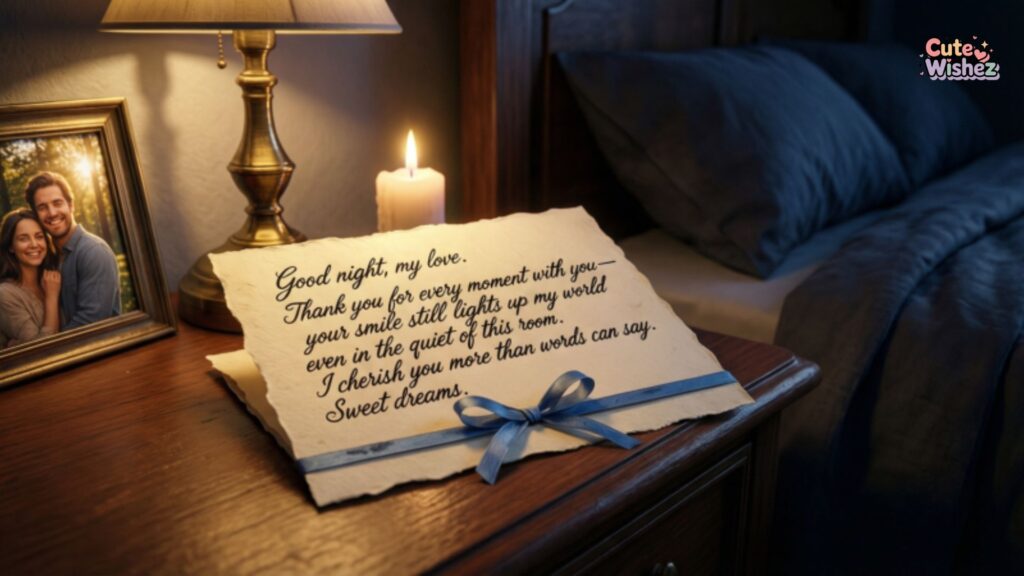 Cute
Wishez
Good night, my love.
Thank you for every moment with you—
your smile still lights up my world
even in the quiet of this room.
I cherish you more than words can say.
Sweet dreams.